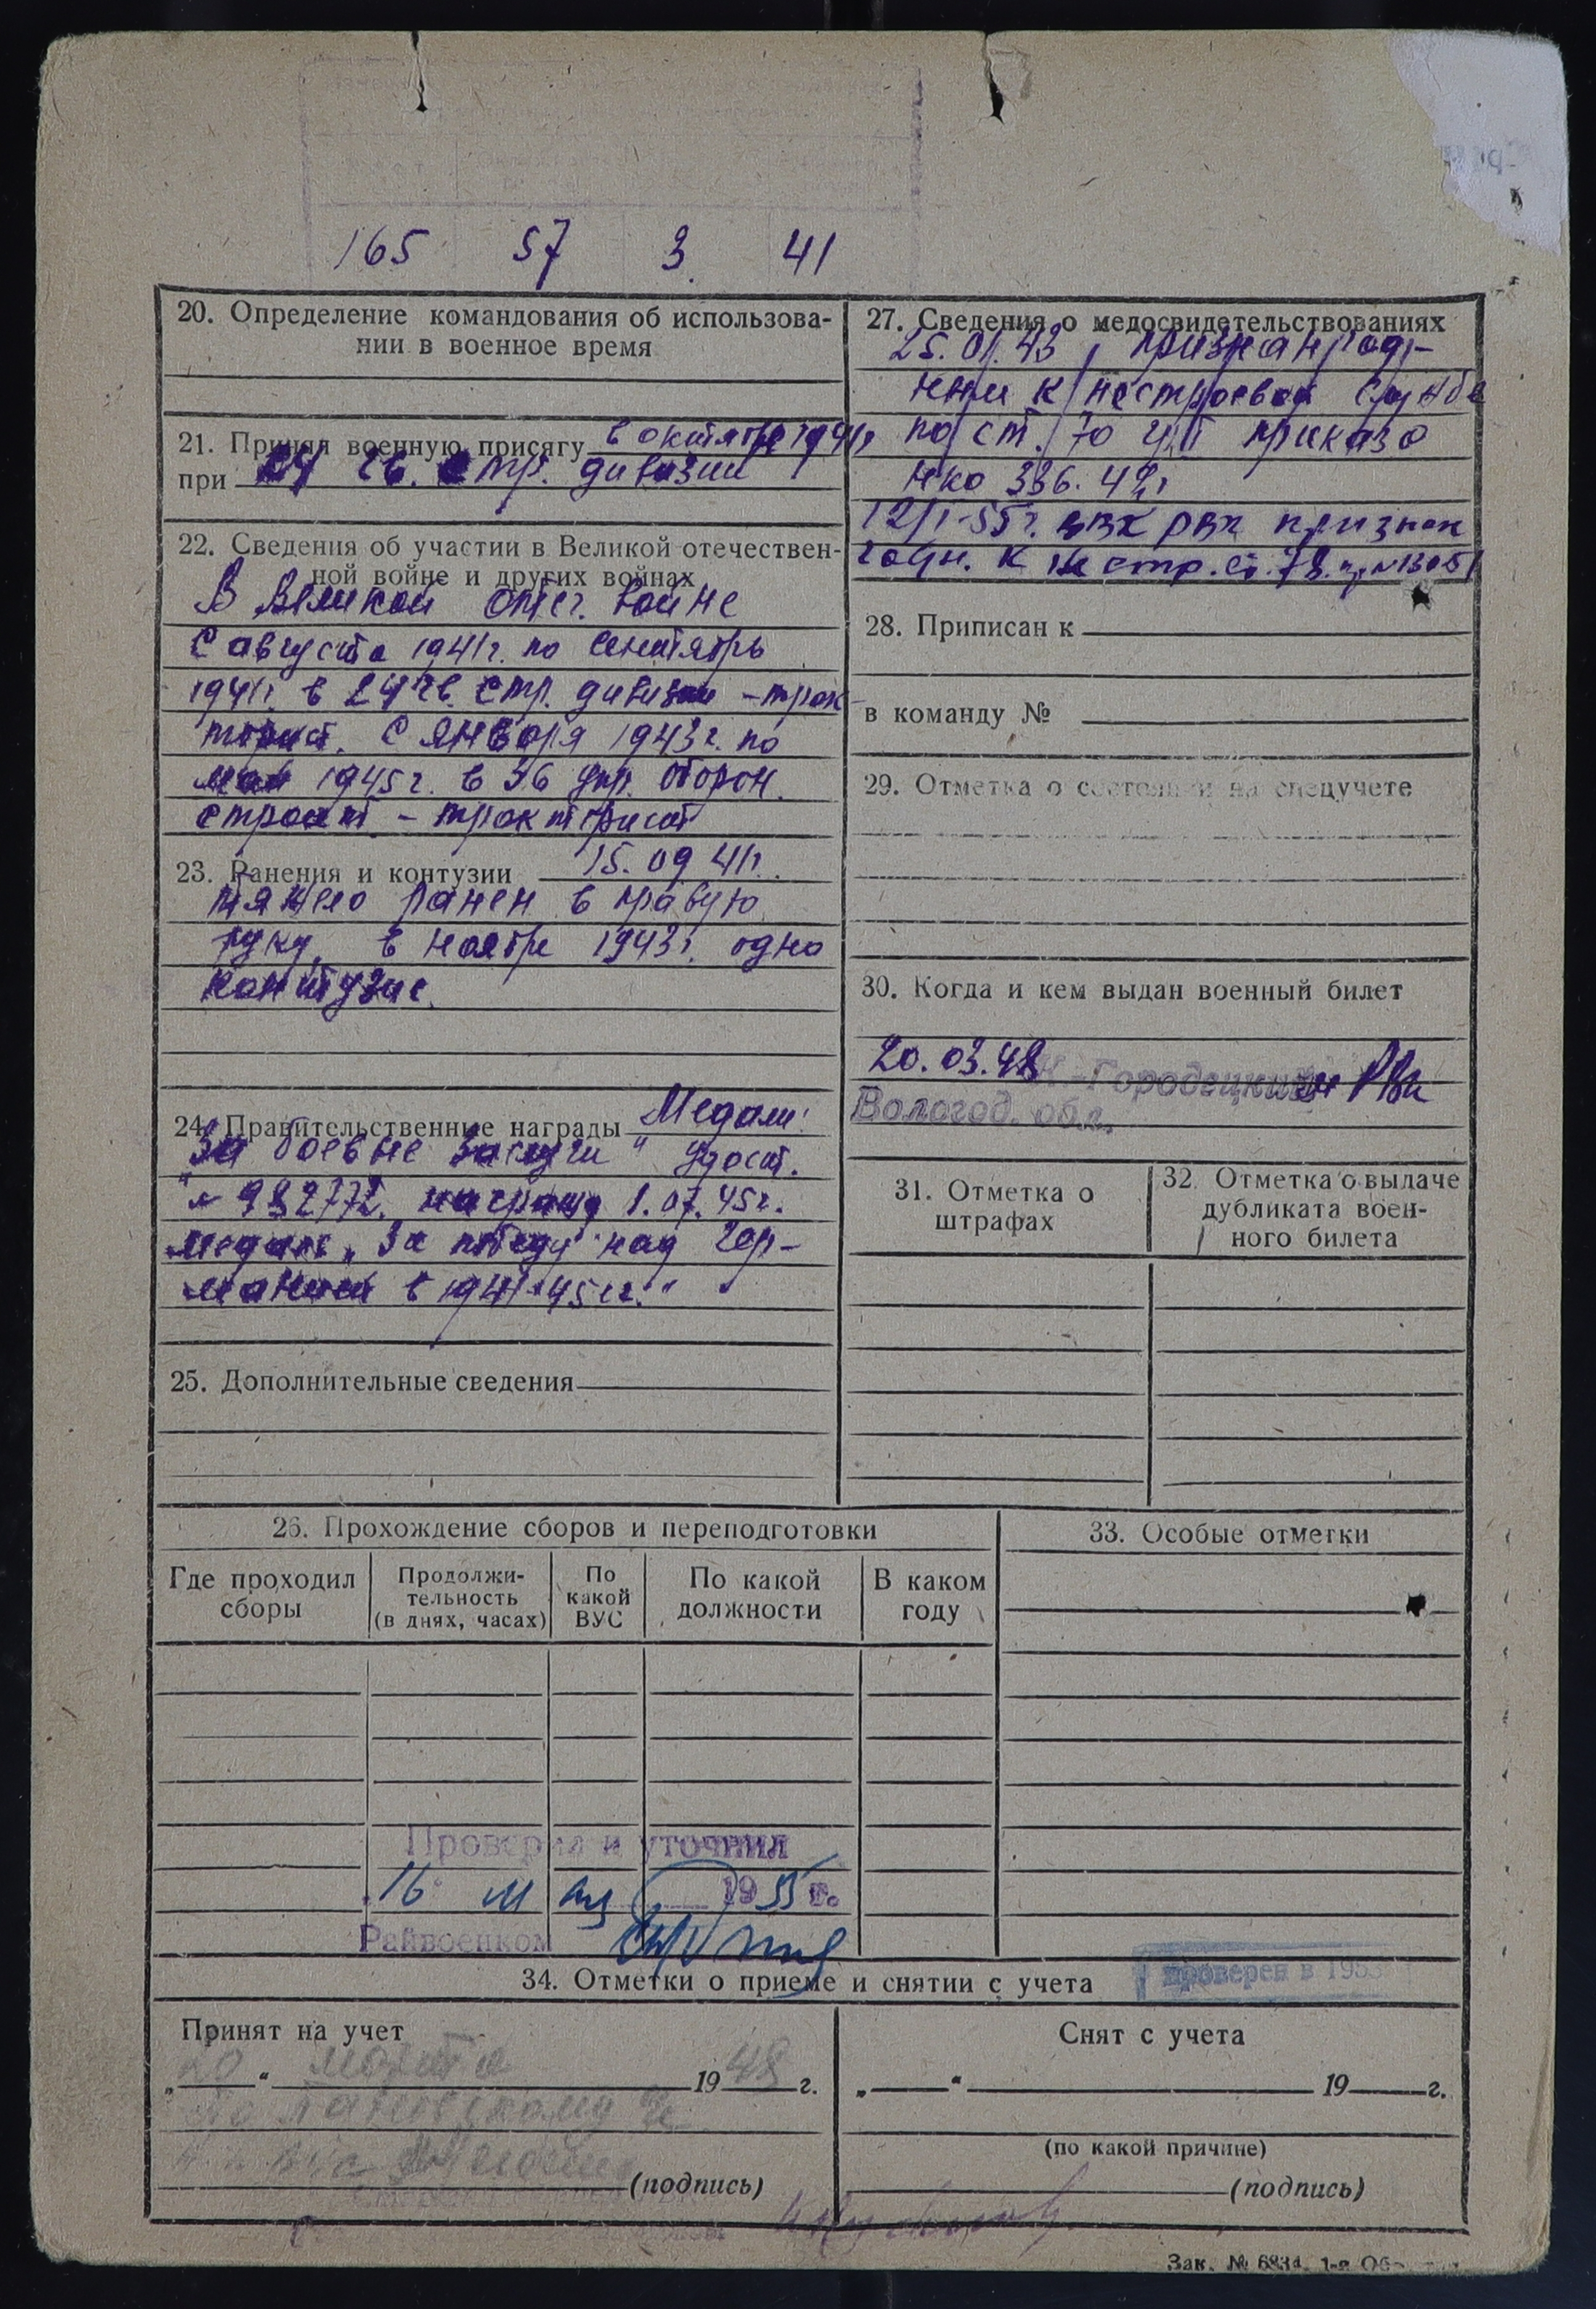 165 57 3 41
20. Определение командования об использова-
нии в военное время
21. Принял военную присягу в октябре 1941г
при 24 гв. стр. дивизии
22. Сведения об участии в Великой отечествен-
ной войне и других войнах
В Великой отеч. войне
с августа 1941г. по сентябрь
1941г. в 24 гв. стр. дивизии - трак
торист. С января 1943г. по
май 1945г. в 36 упр. оборон.
строит - тракторист
23. Ранения и контузии 15.09 41г.
тяжело ранен в правую
руку, в ноябре 1943г. одно
контузие.
24. Правительственные награды Медали:
"За боевые заслуги" удост.
№ 982772. награжд 1.07.45г.
медаль "За победу над Гер-
манией в 1941-45гг."
25. Дополнительные сведения
27. Сведения о медосвидетельствованиях
25.01.43, признан год-
ным к нестроевой службе
по ст. 70 приказа
НКО 336. 42г
12/1-55г. РВК признан
годн. к нестр. ст. 78. пр №130 51
28. Приписан к
в команду №
29. Отметка о состоянии на спецучете
30. Когда и кем выдан военный билет
20.03.48 К-Городецким РВК
Вологод. обл.
31. Отметка о
штрафах
32. Отметка о выдаче
дубликата воен-
ного билета
26. Прохождение сборов и переподготовки
Где проходил
сборы
Продолжи-
тельность
(в днях, часах)
По
какой
ВУС
По какой
должности
В каком
году
33. Особые отметки
Проверил и уточнил
"16" мая 1955 г.
Райвоенком
34. Отметки о приеме и снятии с учета
проверен в 1953
Принят на учет
„20“ марта 1948 г.
(подпись)
Снят с учета
„ “ 19 г.
(по какой причине)
(подпись)
Зак. № 6834. 1-я